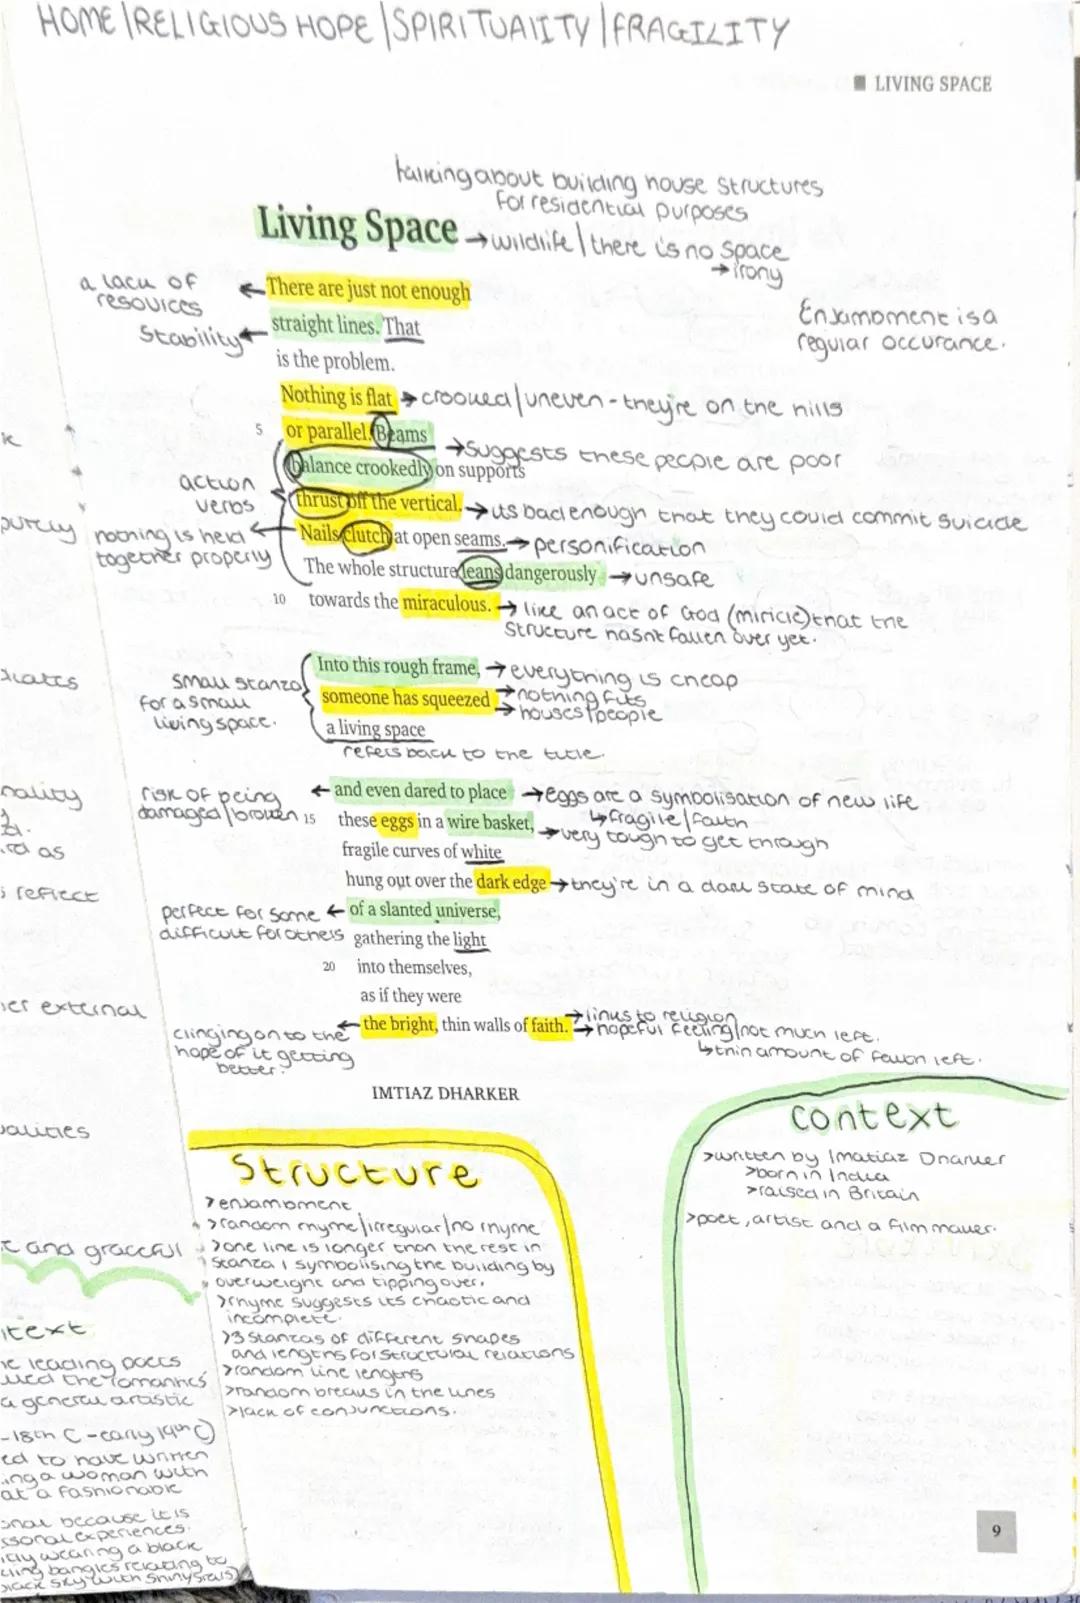 HOME | RELIGIOUS HOPE | SPIRITUALITY | FRAGILITY
LIVING SPACE
talking about building house structures
for residential purposes
Living Space → wildlife | there is no space
→ irony
a lack of
resources
← There are just not enough
Enjambment is a
regular occurance.
Stability ← straight lines. That
is the problem.
Nothing is flat → crooked/uneven - they're on the hills
5 or parallel. Beams
→ Suggests these people are poor
balance crookedly on supports
action
verbs
thrust off the vertical. → its bad enough that they could commit suicide
nothing is held
together properly
← Nails clutch at open seams. → personification
The whole structure leans dangerously → unsafe
10 towards the miraculous. → like an act of God (miricle) that the
structure hasnt fallen over yet.
Into this rough frame, → everything is cheap
small stanza
for a small
living space.
someone has squeezed → nothing fits
→ houses/people
a living space
refers back to the title.
risk of being
damaged/broken
← and even dared to place → eggs are a symbolisation of new life
↳ fragile/faith
15 these eggs in a wire basket, → very tough to get through
fragile curves of white
hung out over the dark edge → they're in a dark state of mind
perfect for some
difficult for others
← of a slanted universe,
gathering the light
20 into themselves,
as if they were
clinging on to the
hope of it getting
better.
← the bright, thin walls of faith. → links to religion
→ hopeful feeling/not much left.
↳ thin amount of faith left.
IMTIAZ DHARKER
Structure
> enjambment
> random rhyme/irregular/no rhyme
> one line is longer than the rest in
stanza 1 symbolising the building by
overweight and tipping over.
> rhyme suggests its chaotic and
incomplete.
> 3 stanzas of different shapes
and lengths for structural relations
> random line lengths
> random breaks in the lines
> lack of conjunctions.
context
> written by Imatiaz Dharker
> born in India
> raised in Britain
> poet, artist and a film maker.
9
purely
reflect
external
and graceful
leading poets
the romantics
a general artistic
- 18th C - early 19th C)
to have written
a woman with
at a fashionable
because it is
experiences.
wearing a black
bangles relating to
sky with shiny stars)